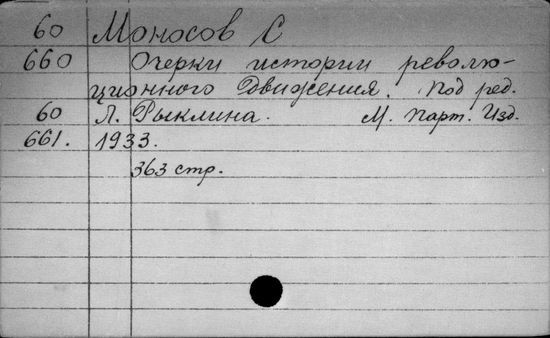 60 Моносов С
660 Очерки истории револю-
ционного движения. Под ред.
60 Л. Рыклина. М. Парт. Изд.
661. 1933.
363 стр.